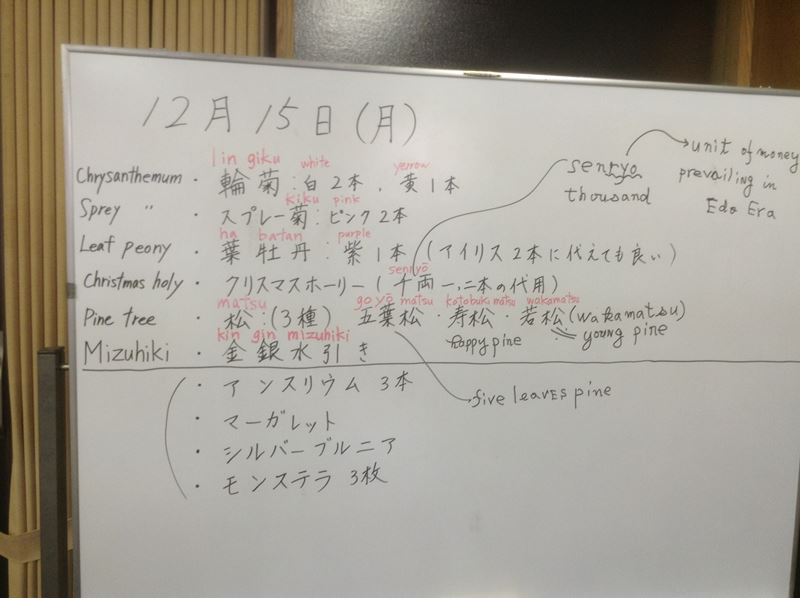 12月15日(月)
lin giku white yerrow
Chrysanthemum・輪菊:白2本,黄1本
kiku pink
Sprey 〃 ・スプレー菊:ピンク2本
ha batan purple
Leaf peony ・葉牡丹:紫1本(アイリス2本に代えても良い)
senryō
Christmas holy・クリスマスホーリー(千両一,二本の代用)
matsu goyō matsu kotobuki matsu wakamatsu
Pine tree ・松:(3種) 五葉松・寿松・若松(wakamatsu)
happy pine young pine
kin gin mizuhiki
Mizuhiki ・金銀水引き
five leaves pine
・アンスリウム 3本
・マーガレット
・シルバーブルニア
・モンステラ 3枚
senryo
thousand
unit of money
prevailing in
Edo Era